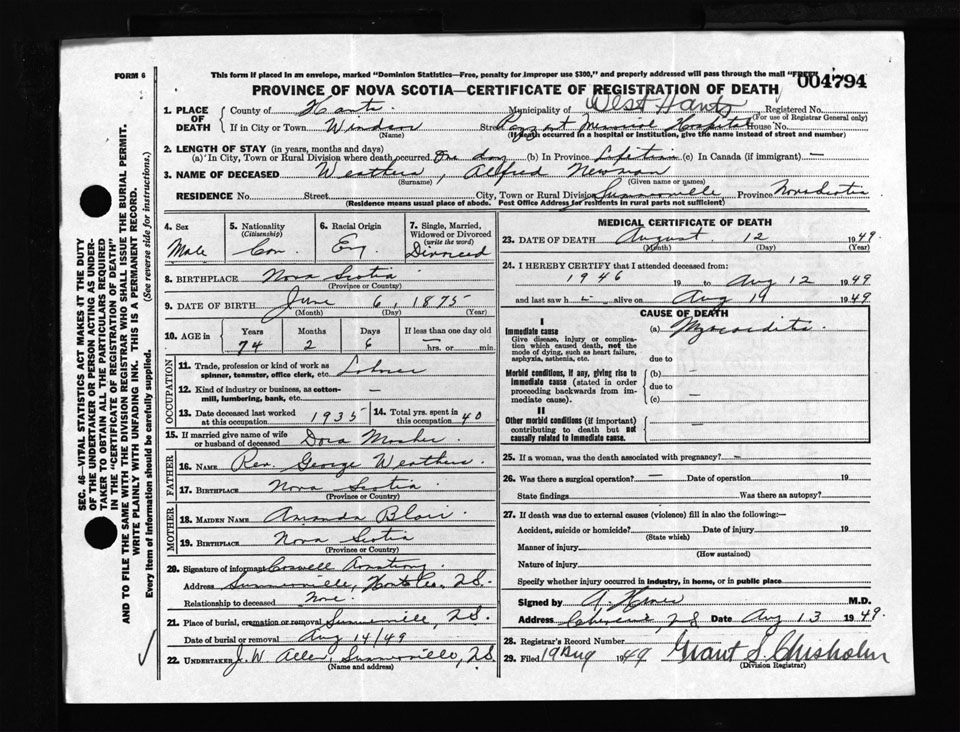 FORM 6
This form if placed in an envelope, marked "Dominion Statistics—Free, penalty for improper use $300," and properly addressed will pass through the mail "FREE"
004794
PROVINCE OF NOVA SCOTIA—CERTIFICATE OF REGISTRATION OF DEATH
1. PLACE OF DEATH
County of Hants. Municipality of West Hants Registered No.
(For use of Registrar General only)
If in City or Town Windsor Street Payzant Memorial Hospital House No.
(Name) (If death occurred in a hospital or institution, give the name instead of street and number)
2. LENGTH OF STAY (in years, months and days)
(a) In City, Town or Rural Division where death occurred One day (b) In Province Lifetime (c) In Canada (if immigrant) —
3. NAME OF DECEASED Weathers, Alfred Newman
(Surname) (Given name or names)
RESIDENCE No. Street City, Town or Rural Division Summerville Province Nova Scotia
(Residence means usual place of abode. Post Office Address for residents in rural parts not sufficient)
4. Sex
Male
5. Nationality
(Citizenship)
Can.
6. Racial Origin
Eng
7. Single, Married, Widowed or Divorced
(write the word)
Divorced
8. BIRTHPLACE Nova Scotia
(Province or Country)
9. DATE OF BIRTH June 6, 1875
(Month) (Day) (Year)
10. AGE in
Years Months Days If less than one day old
74 2 6 — hrs. or min.
OCCUPATION
11. Trade, profession or kind of work as spinner, teamster, office clerk, etc. Laborer
12. Kind of industry or business, as cotton-mill, lumbering, bank, etc. —
13. Date deceased last worked at this occupation 1935
14. Total yrs. spent in this occupation 40
15. If married give name of wife or husband of deceased Dora Mosher
FATHER
16. NAME Rev. George Weathers
17. BIRTHPLACE Nova Scotia
(Province or Country)
MOTHER
18. MAIDEN NAME Amanda Blair
19. BIRTHPLACE Nova Scotia
(Province or Country)
20. Signature of informant Armstrong
Address Summerville, Hants Co. N.S.
Relationship to deceased None.
21. Place of burial, cremation or removal Summerville, N.S.
Date of burial or removal Aug 14/49
22. UNDERTAKER J. W. Allen, Summerville, N.S.
(Name and address)
MEDICAL CERTIFICATE OF DEATH
23. DATE OF DEATH August 12 1949.
(Month) (Day) (Year)
24. I HEREBY CERTIFY that I attended deceased from:
1946 19 to Aug 12 1949
and last saw h alive on Aug 1949
CAUSE OF DEATH
I
Immediate cause
Give disease, injury or complication which caused death, not the mode of dying, such as heart failure, asphyxia, asthenia, etc.
(a) Myocarditis.
due to
Morbid conditions, if any, giving rise to immediate cause (stated in order proceeding backwards from immediate cause).
(b) —
due to
(c) —
II
Other morbid conditions (if important) contributing to death but not causally related to immediate cause. —
25. If a woman, was the death associated with pregnancy? —
26. Was there a surgical operation? — Date of operation 19
State findings Was there an autopsy?
27. If death was due to external causes (violence) fill in also the following:—
Accident, suicide or homicide? Date of injury 19
(State which)
Manner of injury
(How sustained)
Nature of injury
Specify whether injury occurred in industry, in home, or in public place
Signed by M.D.
Address N S Date Aug 13 1949.
28. Registrar's Record Number
29. Filed 19 Aug 1949 Grant S. Chisholm
(Division Registrar)
SEC. 46—VITAL STATISTICS ACT MAKES IT THE DUTY
OF THE UNDERTAKER OR PERSON ACTING AS UNDER-
TAKER TO OBTAIN ALL THE PARTICULARS REQUIRED
IN THE "CERTIFICATE OF REGISTRATION OF DEATH"
AND TO FILE THE SAME WITH THE DIVISION REGISTRAR WHO SHALL ISSUE THE BURIAL PERMIT.
WRITE PLAINLY WITH UNFADING INK. THIS IS A PERMANENT RECORD.
Every item of information should be carefully supplied. (See reverse side for instructions.)